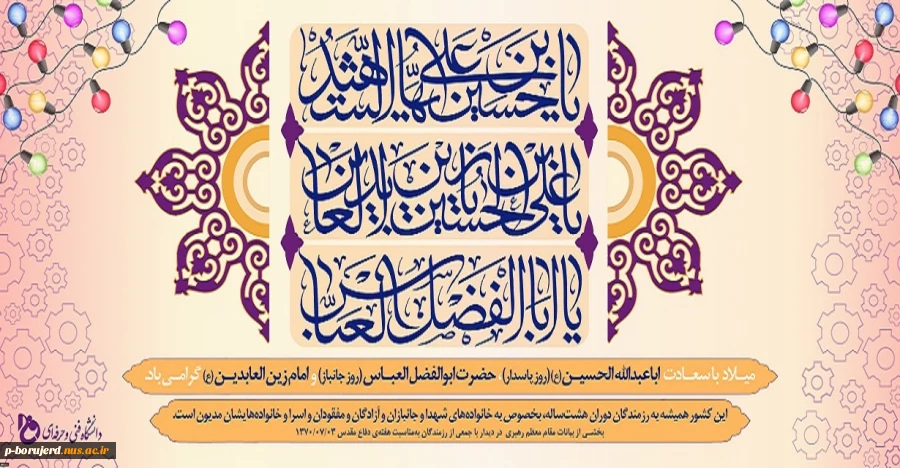 یا حسین بن علی ایها الشهید
یا علی بن الحسین یا زین العابدین
یا اباالفضل العباس
میلاد با سعادت اباعبدالله الحسین (ع) (روز پاسدار) حضرت ابوالفضل العباس (روز جانباز) و امام زین العابدین (ع) گرامی باد.
این کشور همیشه به رزمندگان دوران هشت‌ساله، بخصوص به خانواده‌های شهدا و جانبازان و آزادگان و مفقودان و اسرا و خانواده‌هایشان مدیون است.
بخشی از بیانات مقام معظم رهبری در دیدار با جمعی از رزمندگان به‌مناسبت هفته‌ی دفاع مقدس ۱۳۷۰/۰۷/۰۳
دانشگاه فنی و حرفه‌ای
p-borujerd.nus.ac.ir